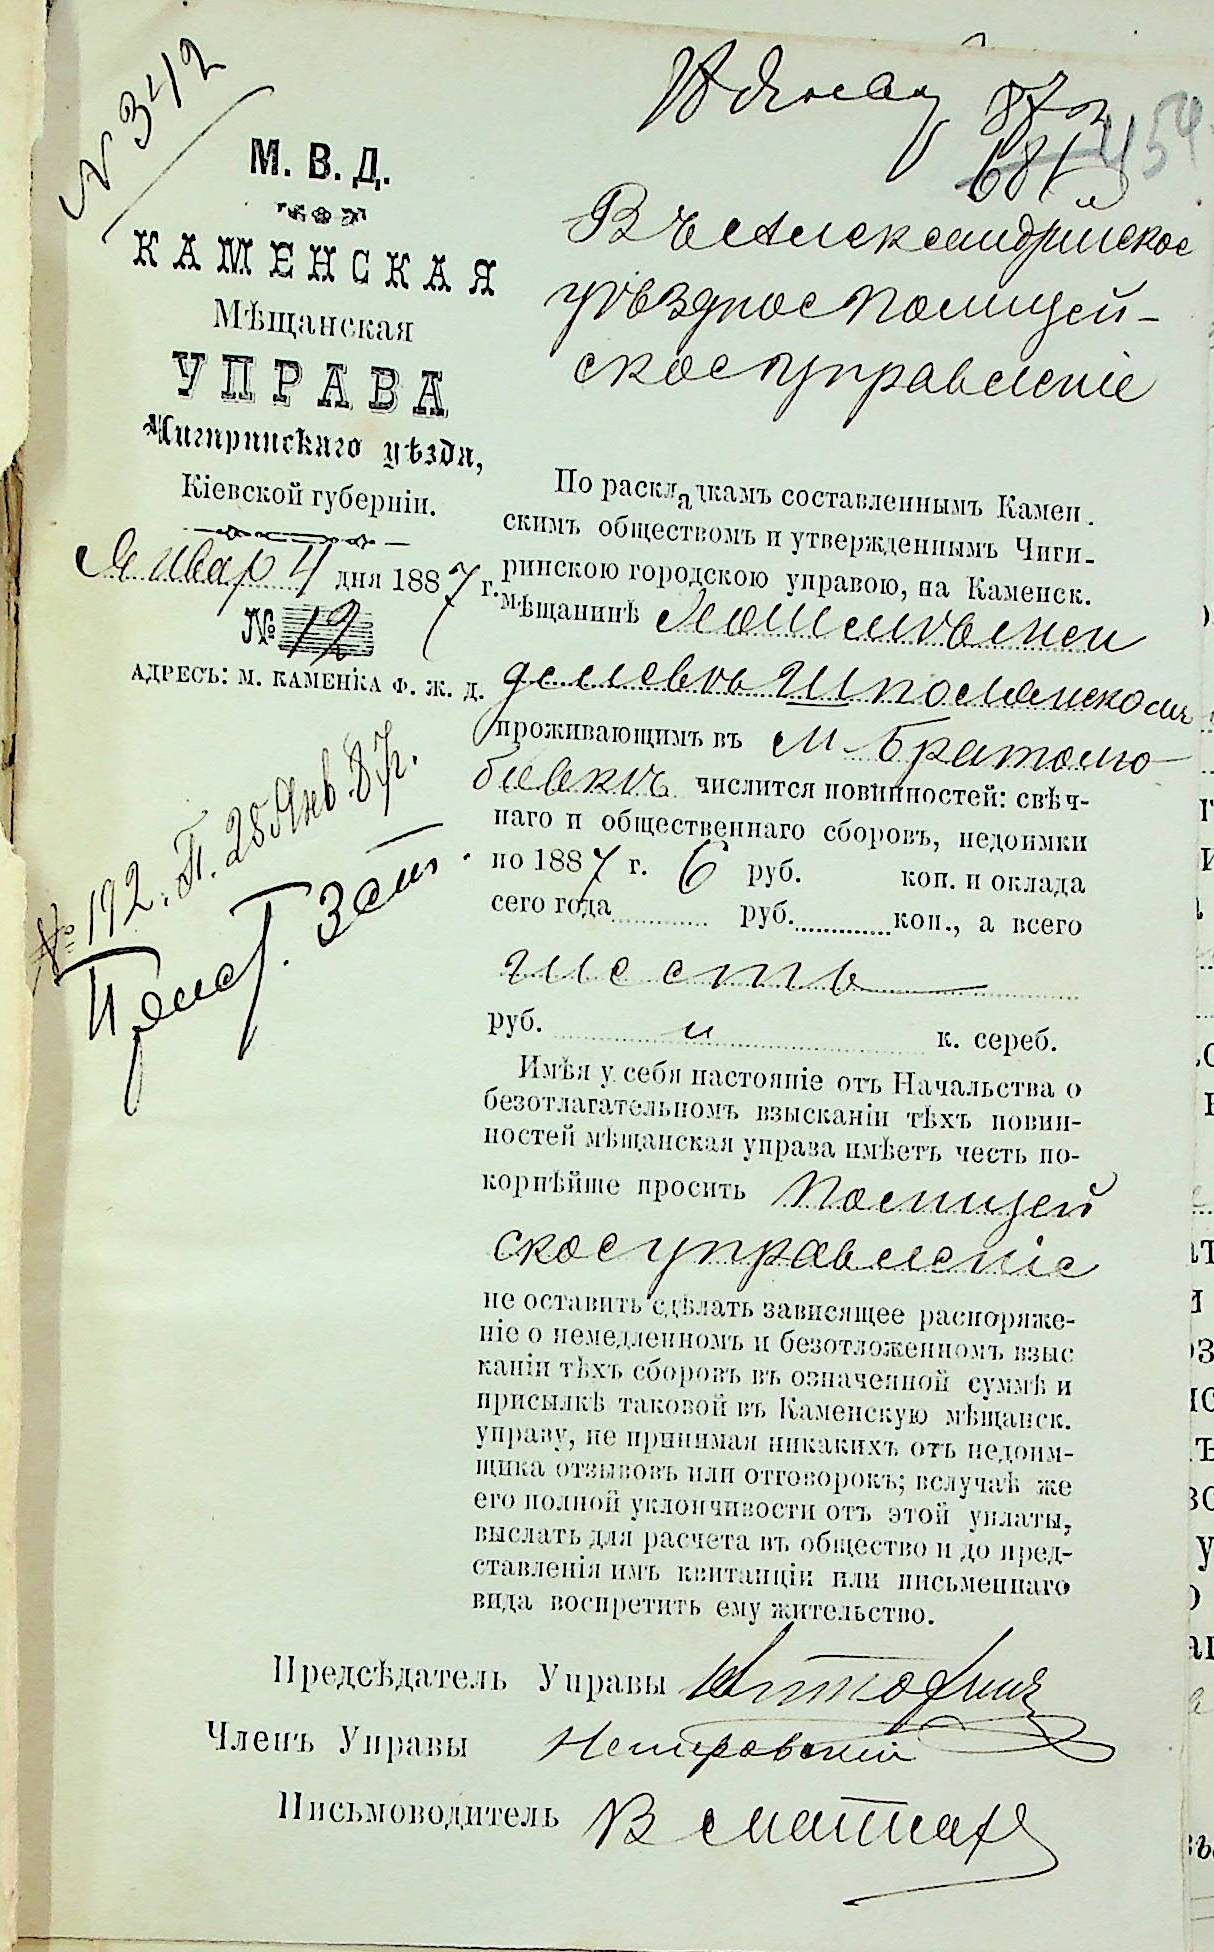 N 342
454
681
М. В. Д.
КАМЕНСКАЯ
Мѣщанская
УПРАВА
Чигиринскаго уѣзда,
Кіевской губерніи.
Январ 4 дня 1887 г.
№ 12
АДРЕСЪ: М. КАМЕНКА Ф. Ж. Д.
№ 192. П. 28 Янв. 87 г.
Въ Александрійское
уѣздное Полицей-
ское управленіе
По раскладкамъ составленнымъ Камен.
скимъ обществомъ и утвержденнымъ Чиги-
ринскою городскою управою, на Каменск.
мѣщанинѣ
Шполянскомъ
проживающимъ въ м Братолю
бивкѣ числится повинностей: свѣч-
наго и общественнаго сборовъ, недоимки
по 1887 г. 6 руб. коп. и оклада
сего года руб. коп., а всего
шесть
руб. и к. сереб.
Имѣя у себя настояніе отъ Начальства о
безотлагательномъ взысканіи тѣхъ повин-
ностей мѣщанская управа имѣетъ честь по-
корнѣйше просить Полицей
ское управленіе
не оставить сдѣлать зависящее распоряже-
ніе о немедленномъ и безотложенномъ взыс
каніи тѣхъ сборовъ въ означенной суммѣ и
присылкѣ таковой въ Каменскую мѣщанск.
управу, не принимая никакихъ отъ недоим-
щика отзывовъ или отговорокъ; вслучаѣ же
его полной уклончивости отъ этой уплаты,
выслать для расчета въ общество и до пред-
ставленія имъ квитанціи или письменнаго
вида воспретить ему жительство.
Предсѣдатель Управы
Членъ Управы Немировскій
Письмоводитель В